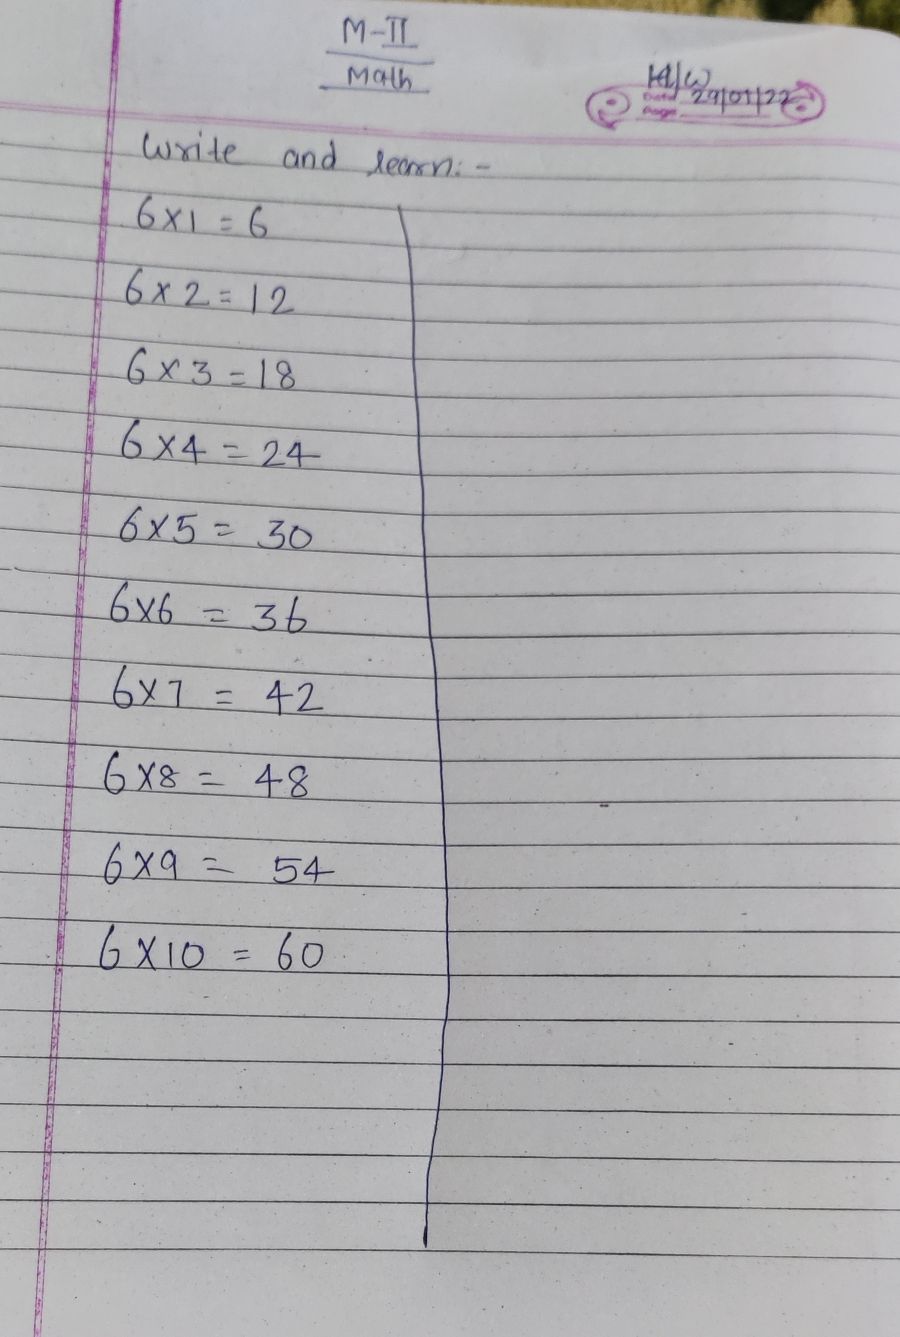 M-II
Math
H/W
Date 29/01/22
Page
Write and learn:-
6x1=6
6x2=12
6x3=18
6x4=24
6x5=30
6x6=36
6x7=42
6x8=48
6x9=54
6x10=60